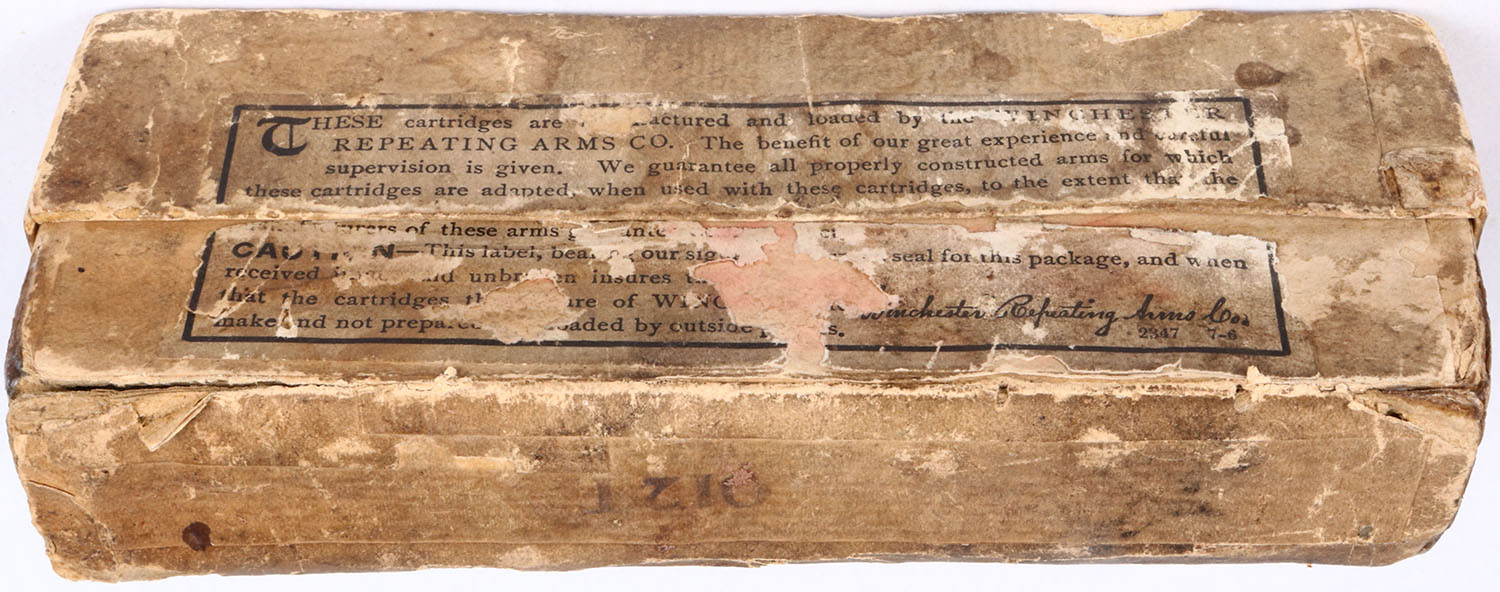 THESE cartridges are actured and loaded by the WINCHESTER
REPEATING ARMS CO. The benefit of our great experience and careful
supervision is given. We guarantee all properly constructed arms for which
these cartridges are adapted, when used with these cartridges, to the extent that the
of these arms
CAUTION—This label, our seal for this package, and when
received and unbroken insures
that the cartridges of
make and not loaded by outside
Winchester Repeating Arms Co.
2347 7-6